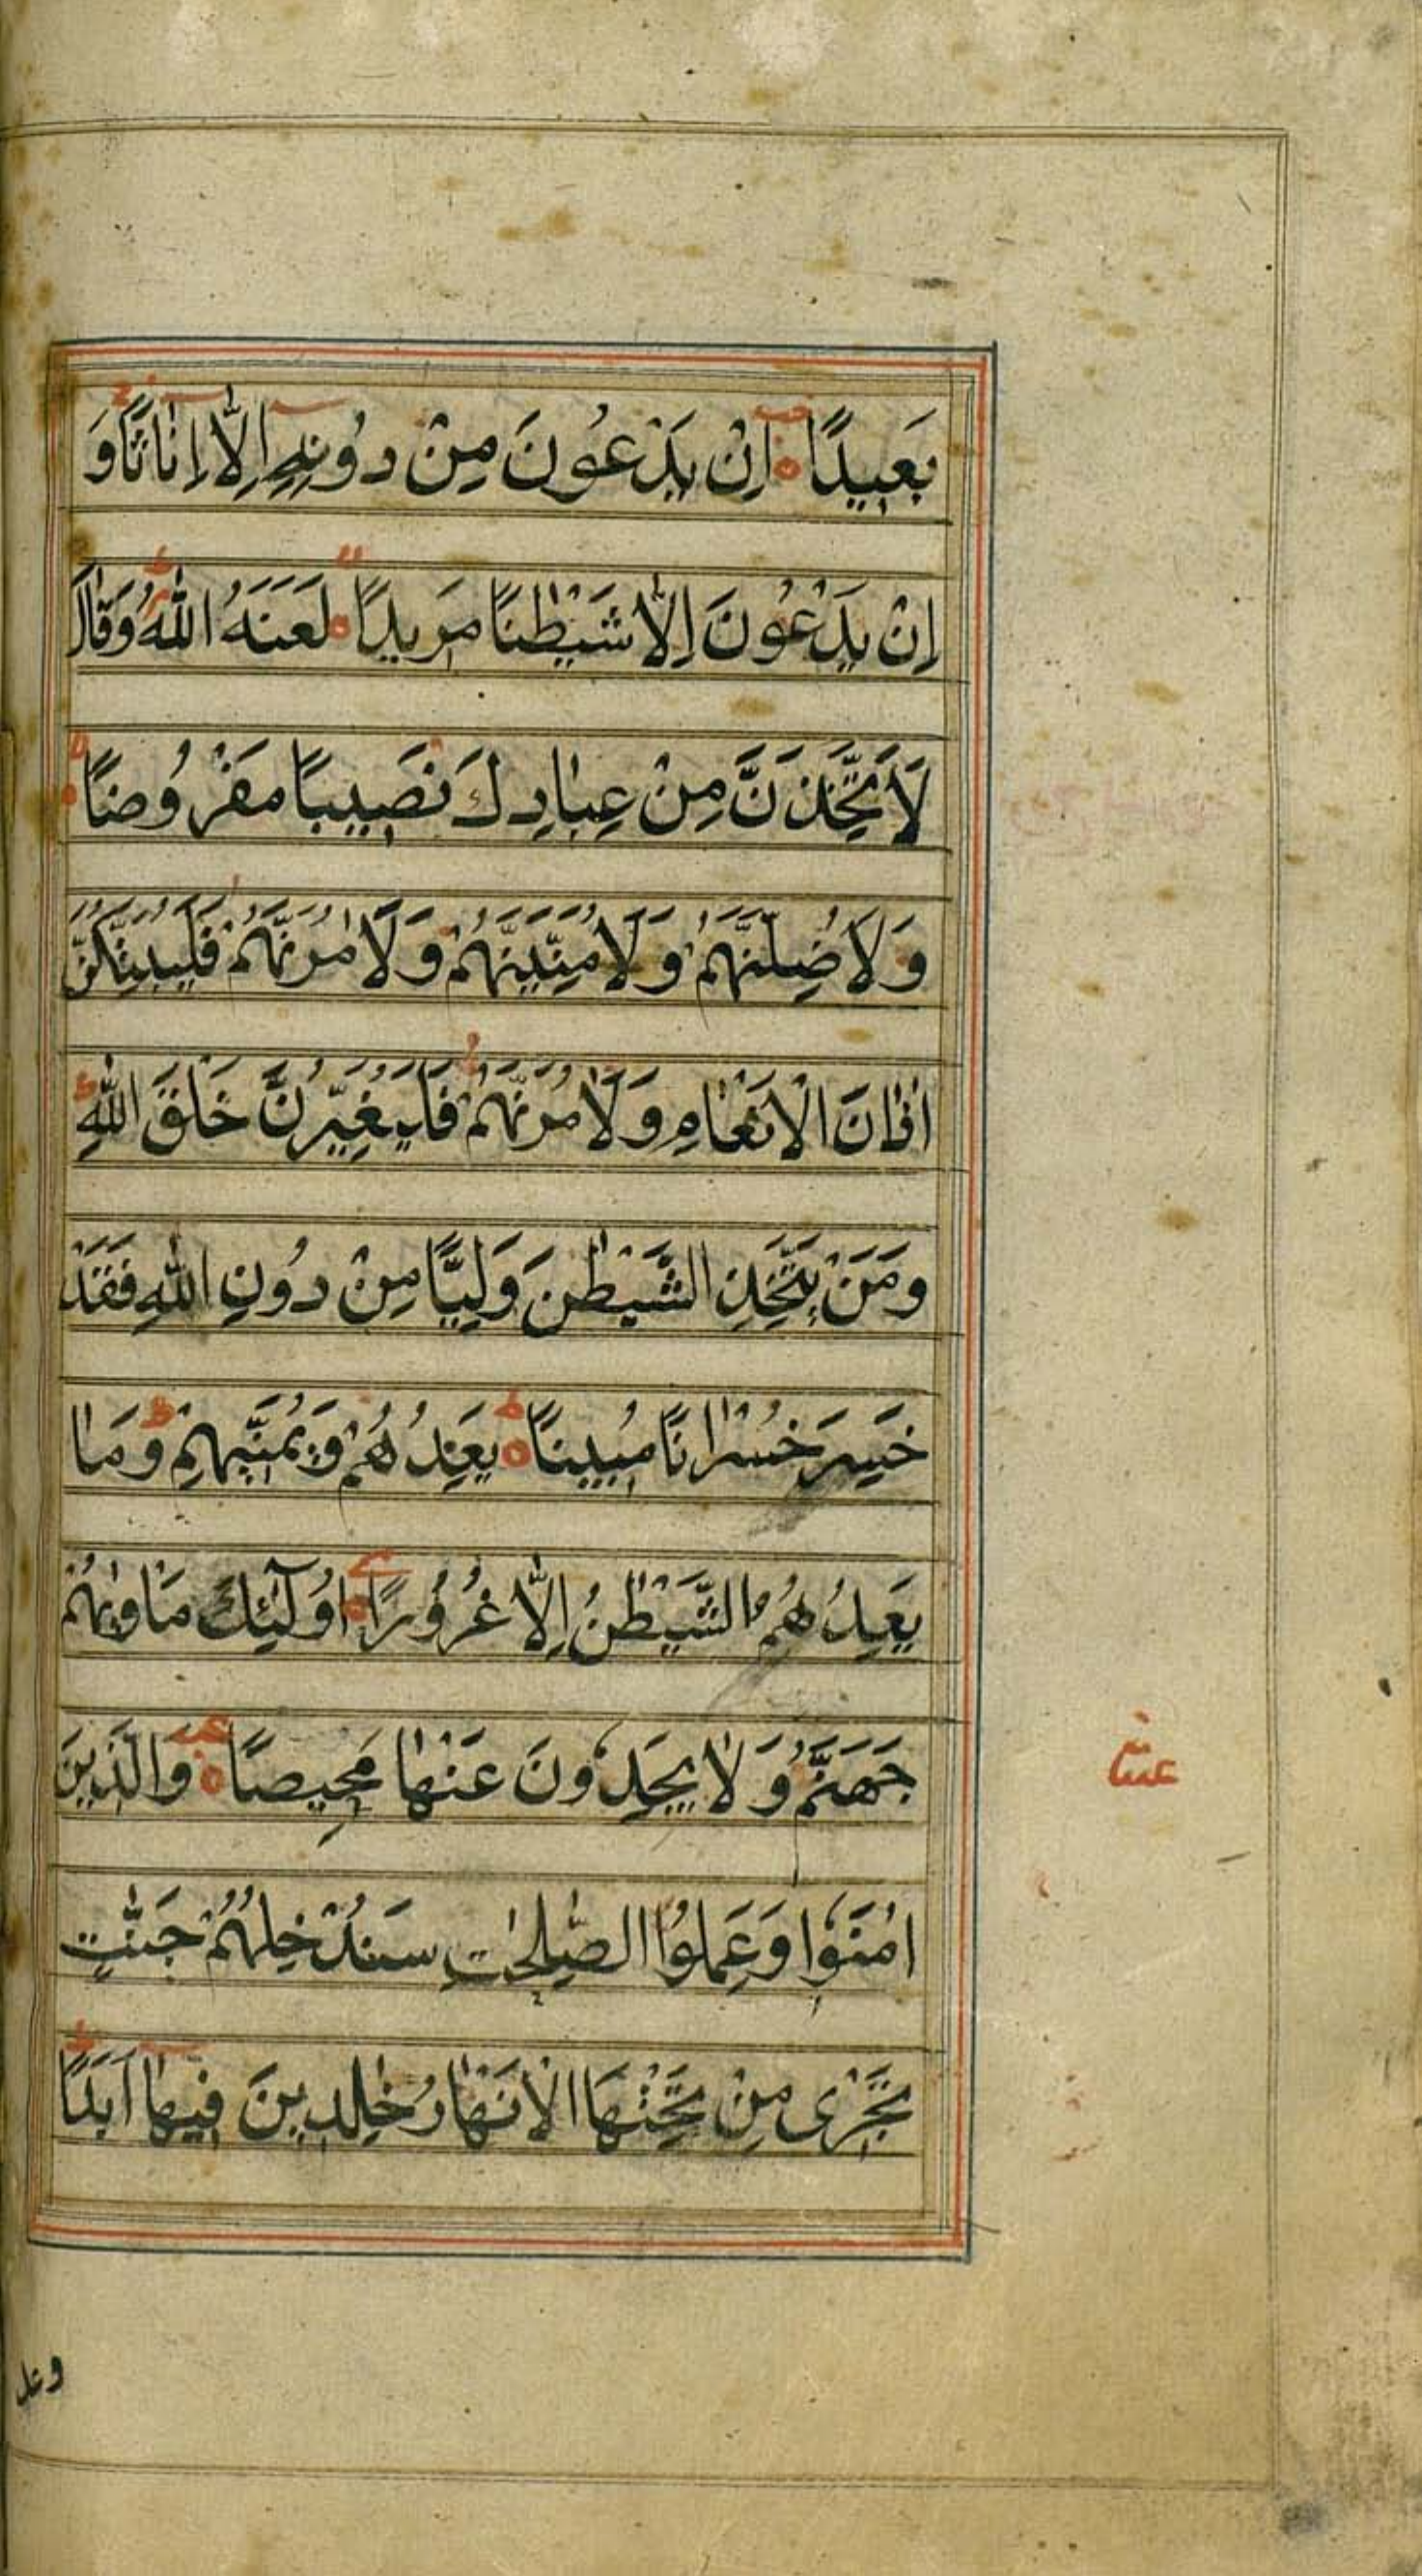 بَعِيدًا ۝ اِنْ يَدْعُونَ مِنْ دُونِهٖ اِلَّا اِنَاثًا وَ
اِنْ يَدْعُونَ اِلَّا شَيْطٰنًا مَرِيدًا ۝ لَعَنَهُ اللّٰهُ وَقَالَ
لَاَتَّخِذَنَّ مِنْ عِبَادِكَ نَصِيبًا مَفْرُوضًا ۝
وَلَاُضِلَّنَّهُمْ وَلَاُمَنِّيَنَّهُمْ وَلَاٰمُرَنَّهُمْ فَلَيُبَتِّكُنَّ
اٰذَانَ الْاَنْعَامِ وَلَاٰمُرَنَّهُمْ فَلَيُغَيِّرُنَّ خَلْقَ اللّٰهِ
وَمَنْ يَتَّخِذِ الشَّيْطٰنَ وَلِيًّا مِنْ دُونِ اللّٰهِ فَقَدْ
خَسِرَ خُسْرَانًا مُبِينًا ۝ يَعِدُهُمْ وَيُمَنِّيهِمْ وَمَا
يَعِدُهُمُ الشَّيْطٰنُ اِلَّا غُرُورًا ۝ اُولٰٓئِكَ مَاْوٰىهُمْ
جَهَنَّمُ وَلَا يَجِدُونَ عَنْهَا مَحِيصًا ۝ وَالَّذِينَ
اٰمَنُوا وَعَمِلُوا الصّٰلِحٰتِ سَنُدْخِلُهُمْ جَنّٰتٍ
تَجْرِى مِنْ تَحْتِهَا الْاَنْهَارُ خٰلِدِينَ فِيهَا اَبَدًا
وعد